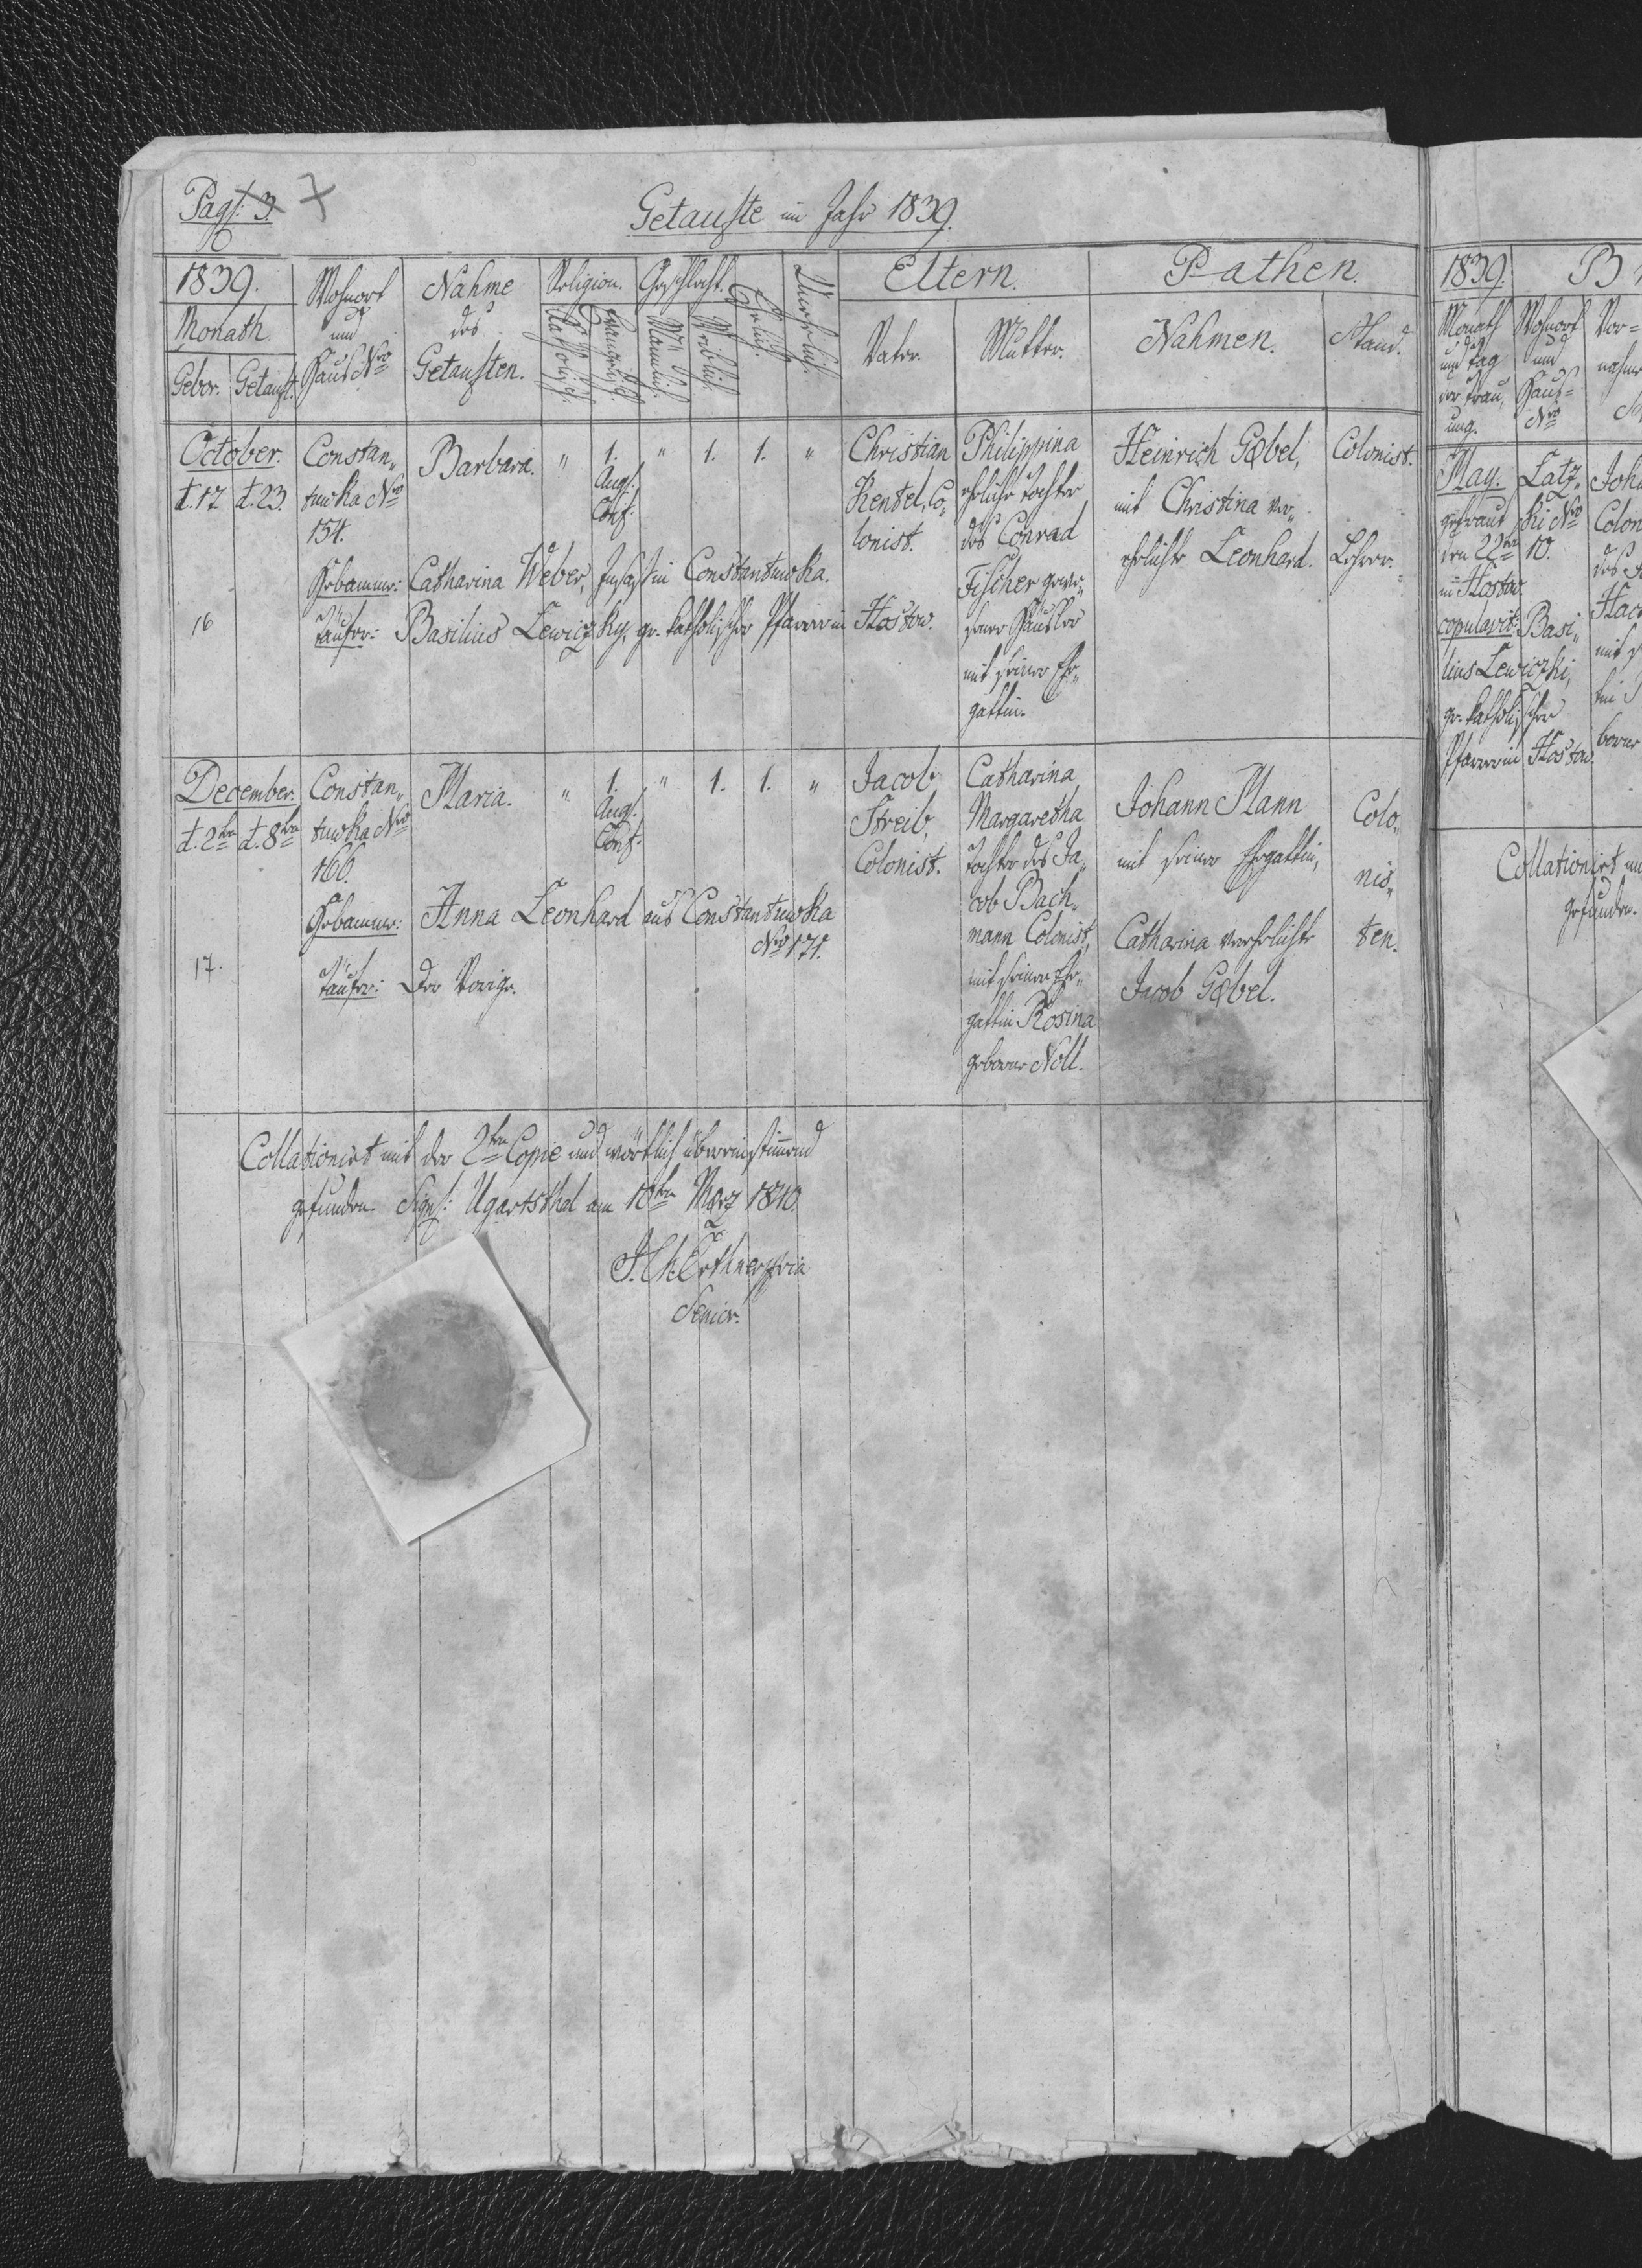 Pag: 3. 7
Getaufte im Jahr 1839.
1839.
Monath.
Gebor. Getauft.
Wohnort
und
Haus Nro
Nahme
des
Getauften.
Religion.
Katholisch.
Evangelisch.
Geschlecht.
Männlich.
Weiblich.
Ehelich.
Unehelich.
Eltern.
Vater.
Mutter.
Pathen.
Nahmen.
Stand.
October.
d. 17. d. 23.
16
Constan„
tuwka Nro
154.
Barbara.
"
1.
Augs:
Conf:
"
1.
1.
"
Christian
Kentel, Co„
lonist.
Philippina
eheliche Tochter
des Conrad
Fischer gewe„
sener Häusler
mit seiner Ehe„
gattin.
Heinrich Gœbel,
mit Christina ver„
ehelichte Leonhard.
Colonist.
Lehrer.
Hebamme: Catharina Weber, Insaßin Constantuwka.
Täufer: Basilius Lewiczky, gr. katholischer Pfarrer in Hostow.
December.
d. 2ten d. 8ten
17.
Constan„
tuwka Nro
166.
Maria.
"
1.
Augs:
Conf:
"
1.
1.
"
Jacob
Streib,
Colonist.
Catharina
Margaretha
Tochter des Ja„
cob Bach„
mann Colonist,
mit seiner Ehe„
gattin Rosina
geborne Noll.
Johann Mann
mit seiner Ehegattin,
Catharina verehelichte
Jacob Gœbel.
Colo„
nis„
ten.
Hebamme: Anna Leonhard aus Constantuwka
Nro 171.
Täufer: Der Vorige.
Collationirt mit der 2ten Copie und wörtlich übereinstimmend
gefunden. Sign: Ugartsthal am 10ten März 1840.
Senior.
1839.
Monath
und Tag
der Trau„
ung.
Wohnort
und
Haus=
Nro
Vor=
May.
getraut
den 22ten
in Hostow
copulavit: Basi„
lius Lewiczki,
gr. katholischer
Pfarrer in Hostow.
Latz„
ki Nro
10.
Colon
mit s
Collationirt
gefunden.